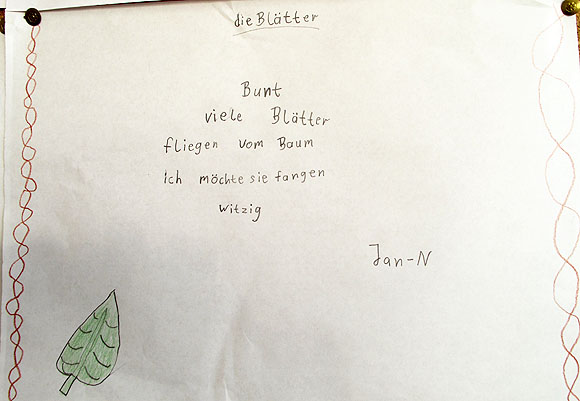 die Blätter
Bunt
viele Blätter
fliegen vom Baum
Ich möchte sie fangen
witzig
Jan-N